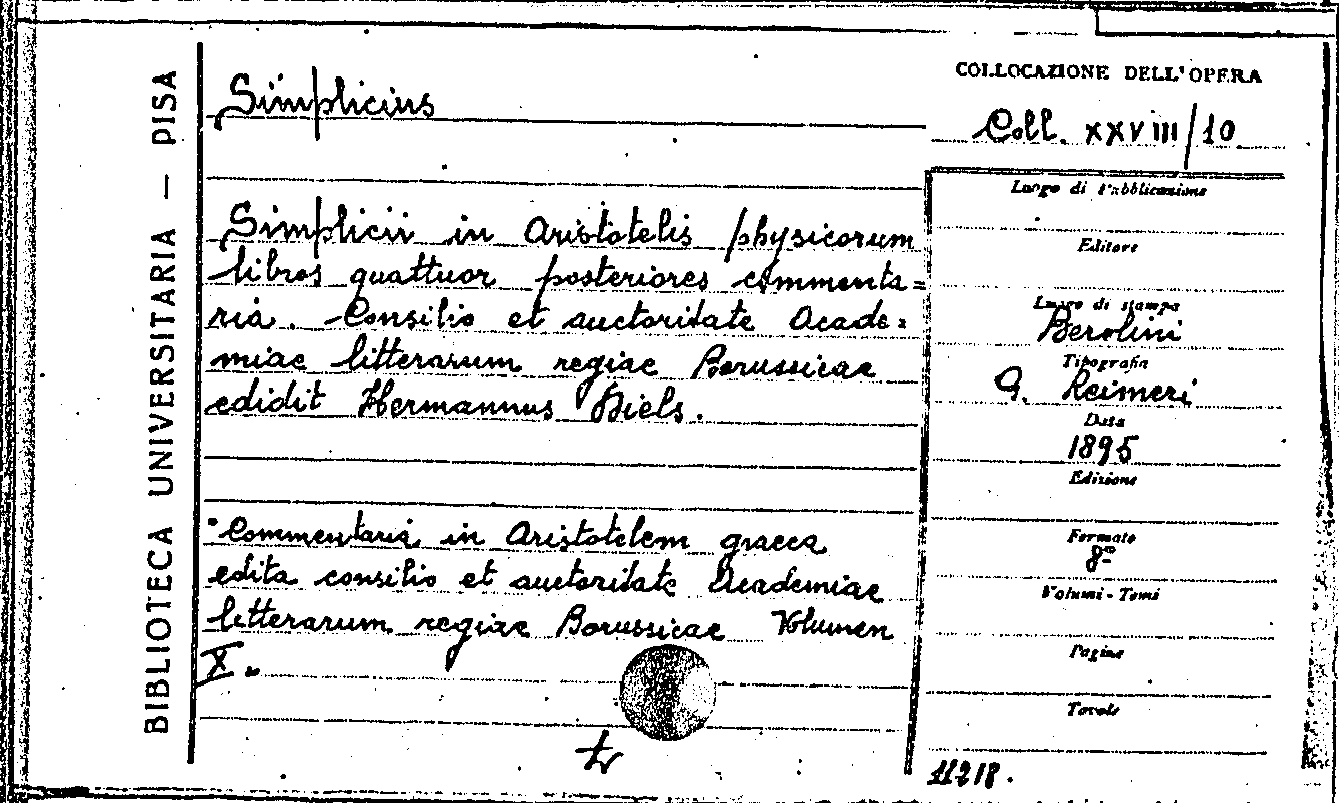 BIBLIOTECA UNIVERSITARIA — PISA
Simplicius
Simplicii in Aristotelis physicorum
libros quattuor posteriores commenta=
ria. Consilio et auctoritate Acade=
miae litterarum regiae Borussicae
edidit Hermannus Diels.
"Commentaria in Aristotelem graeca
edita consilio et auctoritate Academiae
litterarum regiae Borussicae Volumen
X.
tr
COLLOCAZIONE DELL'OPERA
Coll. XXVIII/10
Luogo di Pubblicazione
Editore
Luogo di stampa
Berolini
Tipografia
G. Reimeri
Data
1895
Edizione
Formato
8°
Volumi - Tomi
Pagine
Tavole
11218.